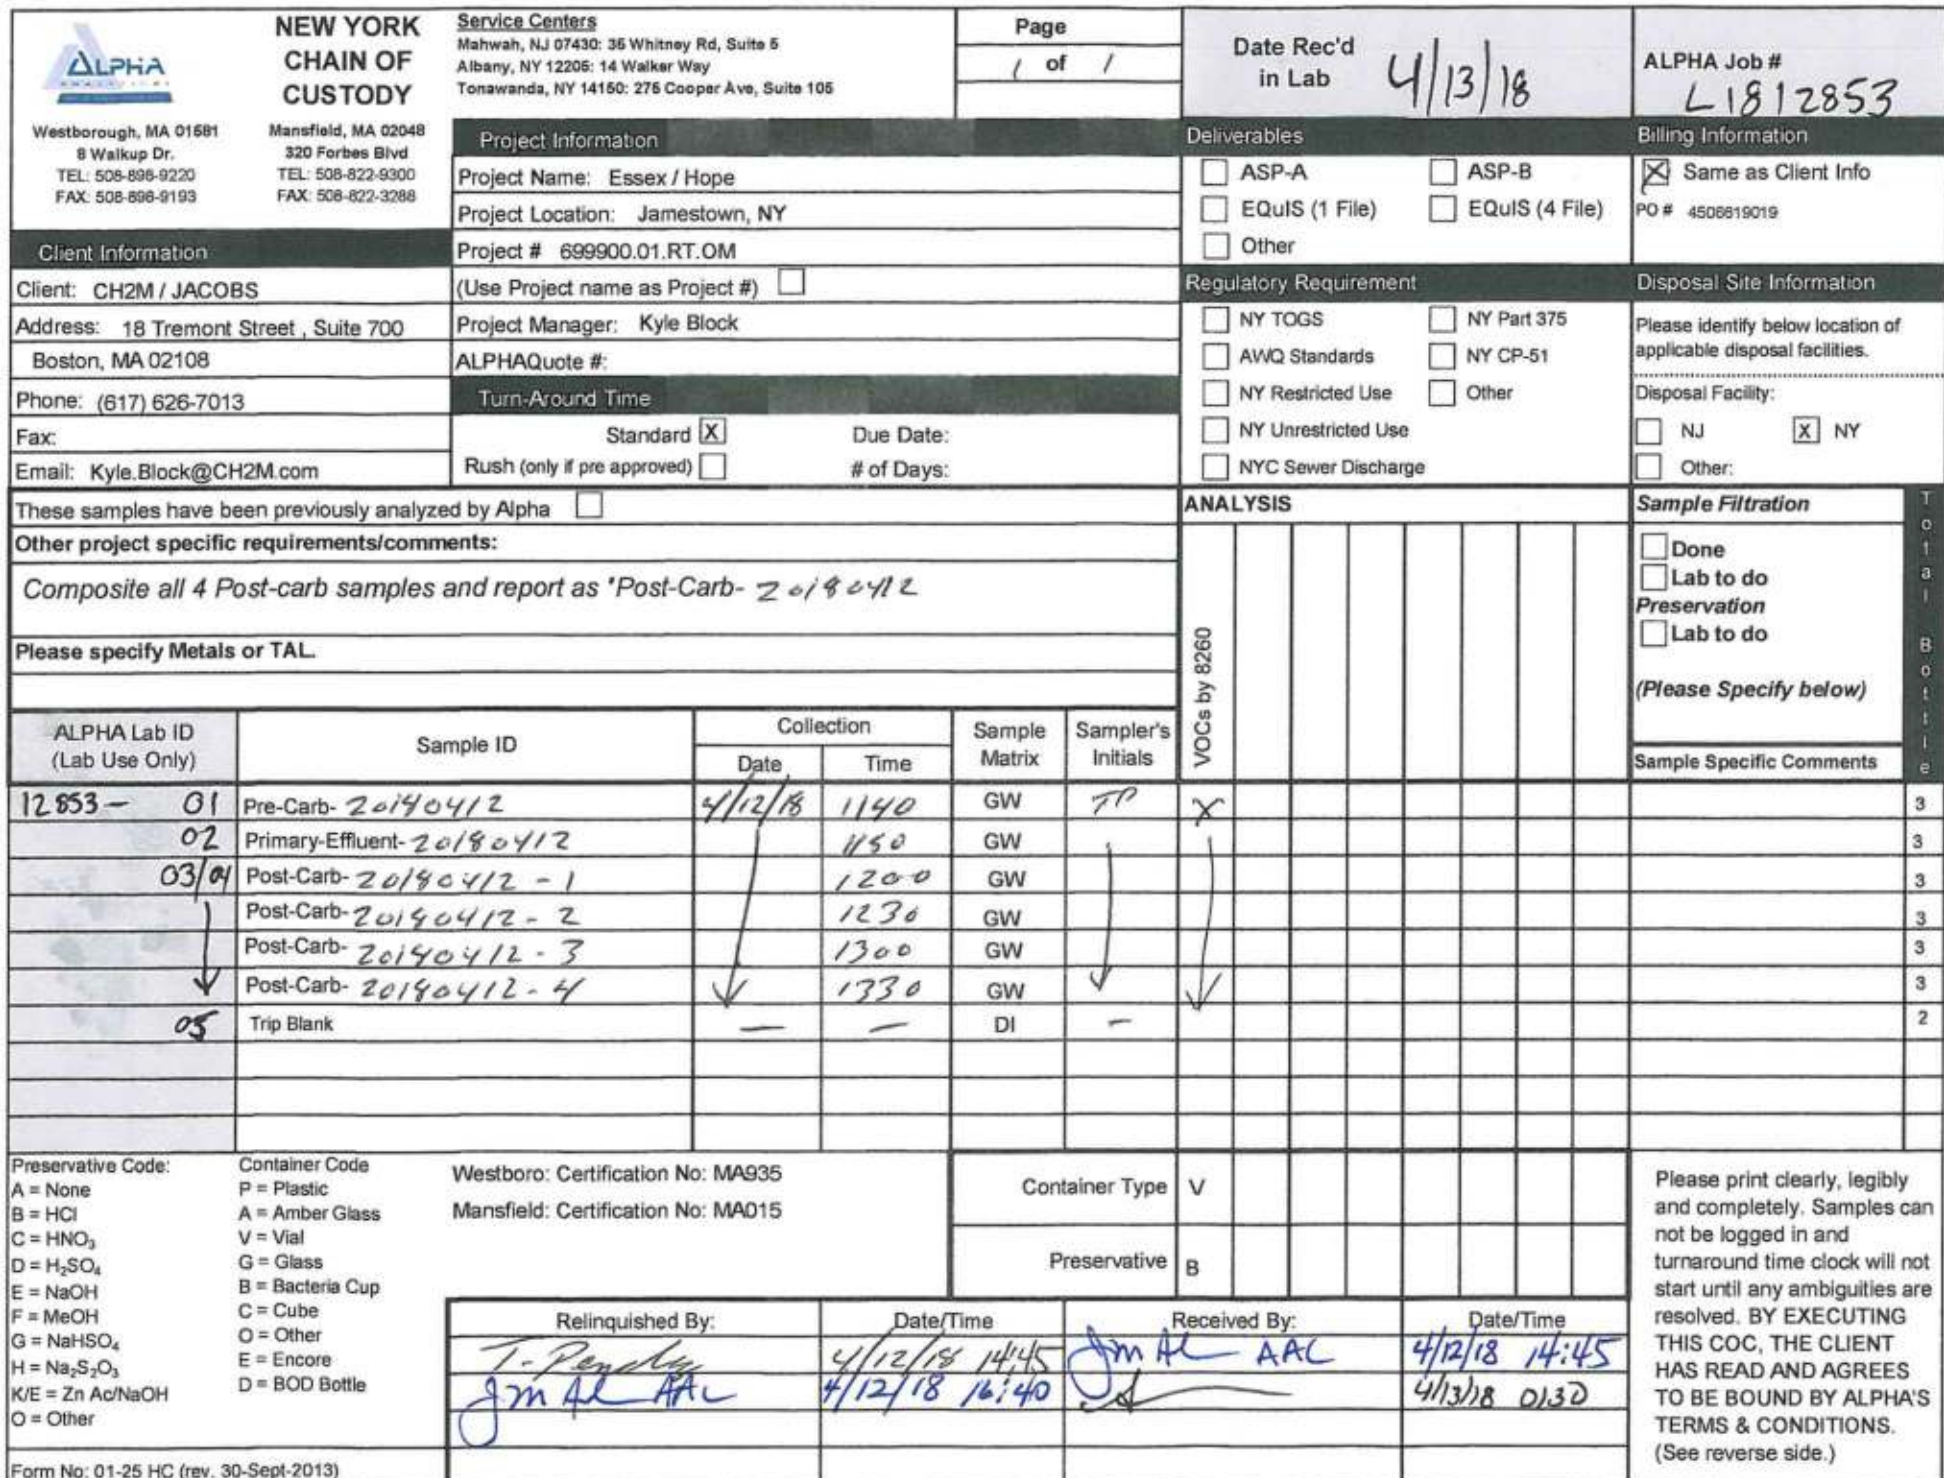 ALPHA
NEW YORK
CHAIN OF
CUSTODY
Westborough, MA 01581
8 Walkup Dr.
TEL: 508-898-9220
FAX: 508-898-9193
Mansfield, MA 02048
320 Forbes Blvd
TEL: 508-822-9300
FAX: 508-822-3288
Service Centers
Mahwah, NJ 07430: 35 Whitney Rd, Suite 5
Albany, NY 12205: 14 Walker Way
Tonawanda, NY 14150: 275 Cooper Ave, Suite 105
Page
1 of 1
Date Rec'd
in Lab 4/13/18
ALPHA Job #
L1812853
Project Information
Project Name: Essex / Hope
Project Location: Jamestown, NY
Project # 699900.01.RT.OM
(Use Project name as Project #)
Project Manager: Kyle Block
ALPHAQuote #:
Deliverables
ASP-A ASP-B
EQuIS (1 File) EQuIS (4 File)
Other
Billing Information
X Same as Client Info
PO # 4506619019
Client Information
Client: CH2M / JACOBS
Address: 18 Tremont Street , Suite 700
Boston, MA 02108
Phone: (617) 626-7013
Fax:
Email: Kyle.Block@CH2M.com
Turn-Around Time
Standard X Due Date:
Rush (only if pre approved) # of Days:
Regulatory Requirement
NY TOGS NY Part 375
AWQ Standards NY CP-51
NY Restricted Use Other
NY Unrestricted Use
NYC Sewer Discharge
Disposal Site Information
Please identify below location of
applicable disposal facilities.
Disposal Facility:
NJ X NY
Other:
These samples have been previously analyzed by Alpha
Other project specific requirements/comments:
Composite all 4 Post-carb samples and report as "Post-Carb- 20180412
Please specify Metals or TAL.
ANALYSIS
VOCs by 8260
Sample Filtration
Done
Lab to do
Preservation
Lab to do
(Please Specify below)
Total Bottle
ALPHA Lab ID
(Lab Use Only)
Sample ID
Collection
Date Time
Sample
Matrix
Sampler's
Initials
Sample Specific Comments
12853- 01 Pre-Carb- 20180412 4/12/18 1140 GW TP X 3
02 Primary-Effluent- 20180412 1150 GW 3
03/04 Post-Carb- 20180412 - 1 1200 GW 3
Post-Carb- 20180412 - 2 1230 GW 3
Post-Carb- 20180412 - 3 1300 GW 3
Post-Carb- 20180412 - 4 1330 GW 3
05 Trip Blank — — DI - 2
Preservative Code:
A = None
B = HCl
C = HNO₃
D = H₂SO₄
E = NaOH
F = MeOH
G = NaHSO₄
H = Na₂S₂O₃
K/E = Zn Ac/NaOH
O = Other
Container Code
P = Plastic
A = Amber Glass
V = Vial
G = Glass
B = Bacteria Cup
C = Cube
O = Other
E = Encore
D = BOD Bottle
Westboro: Certification No: MA935
Mansfield: Certification No: MA015
Container Type V
Preservative B
Relinquished By: Date/Time Received By: Date/Time
4/12/18 14:45 AAC 4/12/18 14:45
AAC 4/12/18 16:40 4/13/18 0130
Please print clearly, legibly
and completely. Samples can
not be logged in and
turnaround time clock will not
start until any ambiguities are
resolved. BY EXECUTING
THIS COC, THE CLIENT
HAS READ AND AGREES
TO BE BOUND BY ALPHA'S
TERMS & CONDITIONS.
(See reverse side.)
Form No: 01-25 HC (rev. 30-Sept-2013)